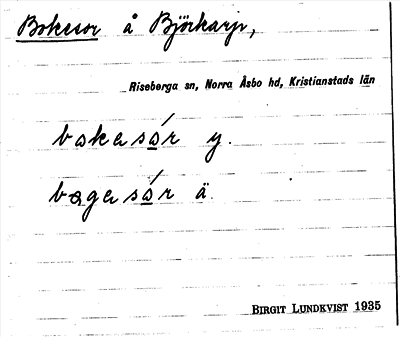 Bokesor å Björkarp,
Riseberga sn, Norra Åsbo hd, Kristianstads län
bokesår y.
bogesår ä.
BIRGIT LUNDKVIST 1935